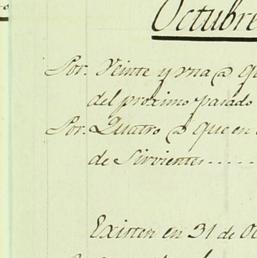 Octubre
Por. Veinte y vna @ q
del proximo pasado
Por. Quatro @ que en
de Sirvientes.....
Existen en 31 de Oc